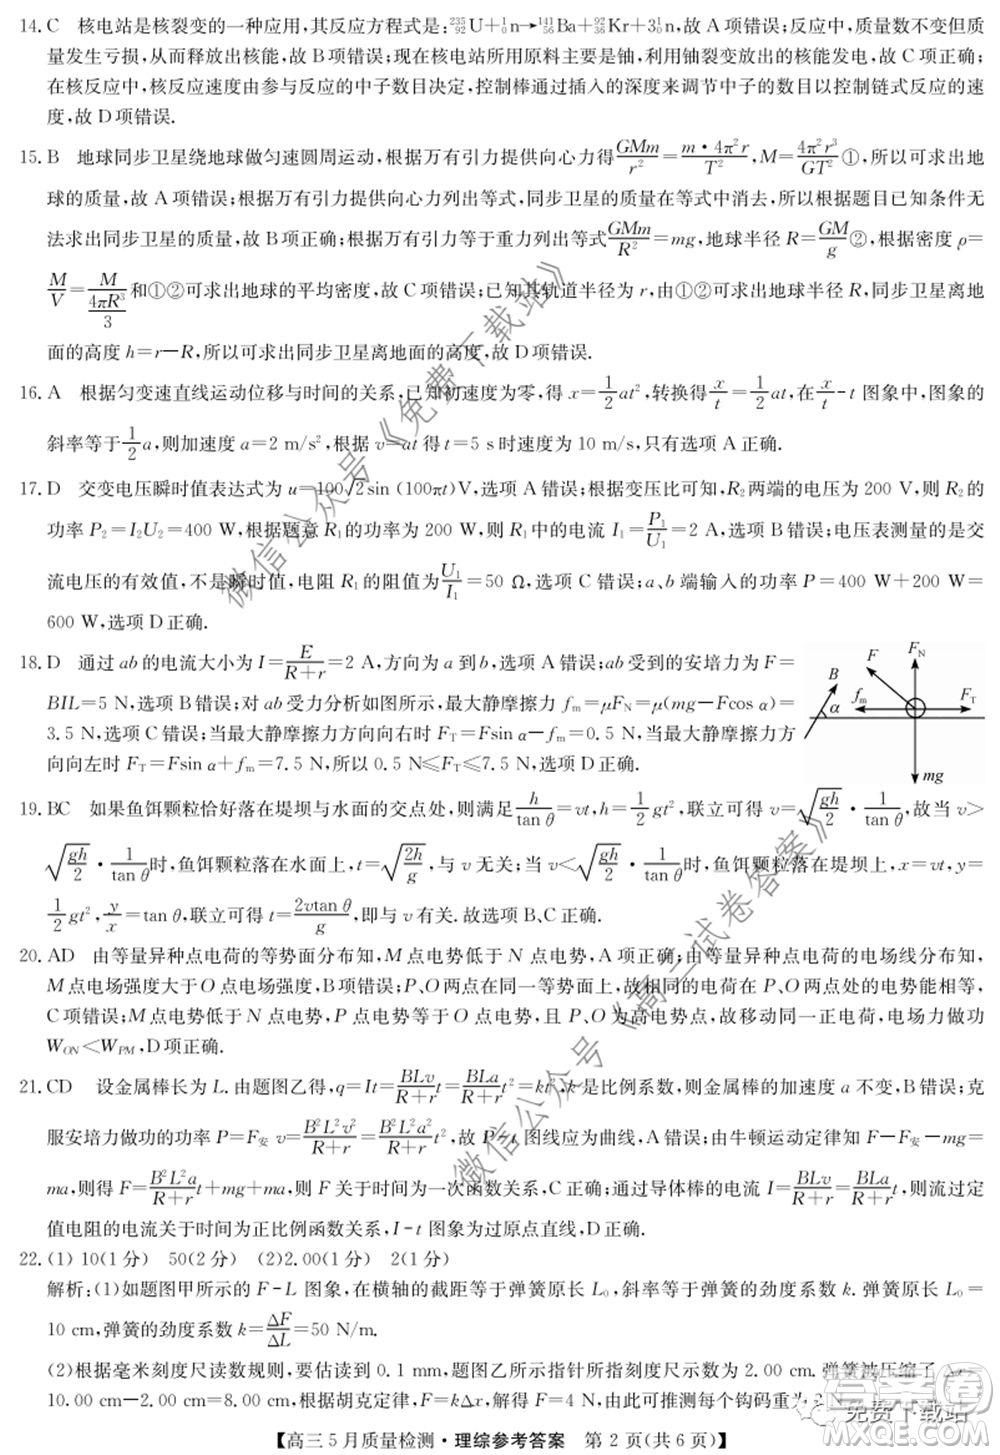 14. C　核电站是核裂变的一种应用,其反应方程式是:²³⁵₉₂U+¹₀n→¹⁴¹₅₆Ba+⁹²₃₆Kr+3¹₀n,A项错误;反应中,质量数不变但质量
发生亏损,从而释放出核能,故B项错误;现在核电站所用原料主要是铀,利用铀裂变放出的核能发电,故C项正确;
在核反应中,核反应速度由参与反应的中子数目决定,控制棒通过插入的深度来调节中子的数目以控制链式反应的速
度,故D项错误.
15. B　地球同步卫星绕地球做匀速圆周运动,根据万有引力提供向心力得GMm/r²=m·4π²r/T²,M=4π²r³/GT²①,所以可求出地
球的质量,故A项错误;根据万有引力提供向心力列出等式,同步卫星的质量在等式中消去,所以根据题目已知条件无
法求出同步卫星的质量,故B项正确;根据万有引力等于重力列出等式GMm/R²=mg,地球半径R=√(GM/g)②,根据密度ρ=
M/V=M/(4πR³/3)和①②可求出地球的平均密度,故C项错误;已知其轨道半径为r,由②可求出地球半径R,同步卫星离地
面的高度h=r－R,所以可求出同步卫星离地面的高度,故D项错误.
16. A　根据匀变速直线运动位移与时间的关系,已知初速度为零,得x=1/2at²,转换得x/t=1/2at,在x/t-t图象中,图象的
斜率等于1/2a,则加速度a=2 m/s²,根据v=at得t=5 s时速度为10 m/s,只有选项A正确.
17. D　交变电压瞬时值表达式为u=100√2sin (100πt)V,选项A错误;根据变压比可知,R₂两端的电压为200 V,则R₂的
功率P₂=I₂U₂=400 W,根据题意R₁的功率为200 W,则R₁中的电流I₁=P₁/U₁=2 A,选项B错误;电压表测量的是交
流电压的有效值,不是瞬时值,电阻R₁的阻值为U₁/I₁=50 Ω,选项C错误;a、b端输入的功率P=400 W+200 W=
600 W,选项D正确.
18. D　通过ab的电流大小为I=E/(R+r)=2 A,方向为a到b,选项A错误;ab受到的安培力为F=
BIL=5 N,选项B错误;对ab受力分析如图所示,最大静摩擦力fm=μFN=μ(mg－Fcos α)=
3.5 N,选项C错误;当最大静摩擦力方向向右时FT=Fsin α－fm=0.5 N,当最大静摩擦力方
向向左时FT=Fsin α+fm=7.5 N,所以0.5 N≤FT≤7.5 N,选项D正确.
B
α
F
FN
fm
FT
mg
19. BC　如果鱼饵颗粒恰好落在堤坝与水面的交点处,则满足h/tan θ=vt,h=1/2gt²,联立可得v=√(gh/2)·1/tan θ,故当v>
√(gh/2)·1/tan θ时,鱼饵颗粒落在水面上,t=√(2h/g),与v无关;当v<√(gh/2)·1/tan θ时,鱼饵颗粒落在堤坝上,x=vt,y=
1/2gt²,y/x=tan θ,联立可得t=2vtan θ/g,即与v有关.故选项B、C正确.
20. AD　由等量异种点电荷的等势面分布可知,M点电势低于N点电势,A项正确;由等量异种点电荷的电场分布可知,
M点电场强度大于O点电场强度,B项错误;P、O两点在同一等势面上,故相同的电荷在P、O两点的电势能相等,
C项错误;M点电势低于N点电势,P点电势大于M点电势,且P、O为高电势点,故移动一正点电荷,电场力做功
W_ON<W_PM,D项正确.
21. CD　设金属棒长为L.由题图乙得,q=It=BLv/(R+r)t=BLa/(R+r)t²=kt²,k是比例系数,则金属棒的加速度a不变,B错误;克
服安培力做功的功率P=F安v=B²L²v²/(R+r)=B²L²a²/(R+r)t²,故P-t图线应为曲线,A错误;由牛顿运动定律知F－F安－mg=
ma,则得F=B²L²a/(R+r)t+mg+ma,则F关于时间为一次函数关系,C正确;通过导体棒的电流I=BLv/(R+r)=BLat/(R+r),则流过定
值电阻的电流关于时间为正比例函数关系,I-t图象为过原点直线,D正确.
22. (1) 10(1分)　50(2分)　(2)2.00(1分)　2(1分)
解析:(1)如题图甲所示的F-L图象,在横轴的截距等于弹簧原长L₀,斜率等于弹簧的劲度系数k.弹簧原长L₀=
10 cm,弹簧的劲度系数k=ΔF/ΔL=50 N/m.
(2)根据毫米刻度尺读数规则,要估读到0.1 mm,题图乙所示指针所指刻度尺示数为2.00 cm.弹簧被压缩了Δx=
10.00 cm－2.00 cm=8.00 cm,根据胡克定律,F=kΔx,解得F=4 N.由此可推测每个钩码重为2
【高三5月质量检测·理综参考答案　第2页(共6页)】
微信公众号《免费下载站》
微信公众号《高三试卷答案》
答案圈
免费下载站